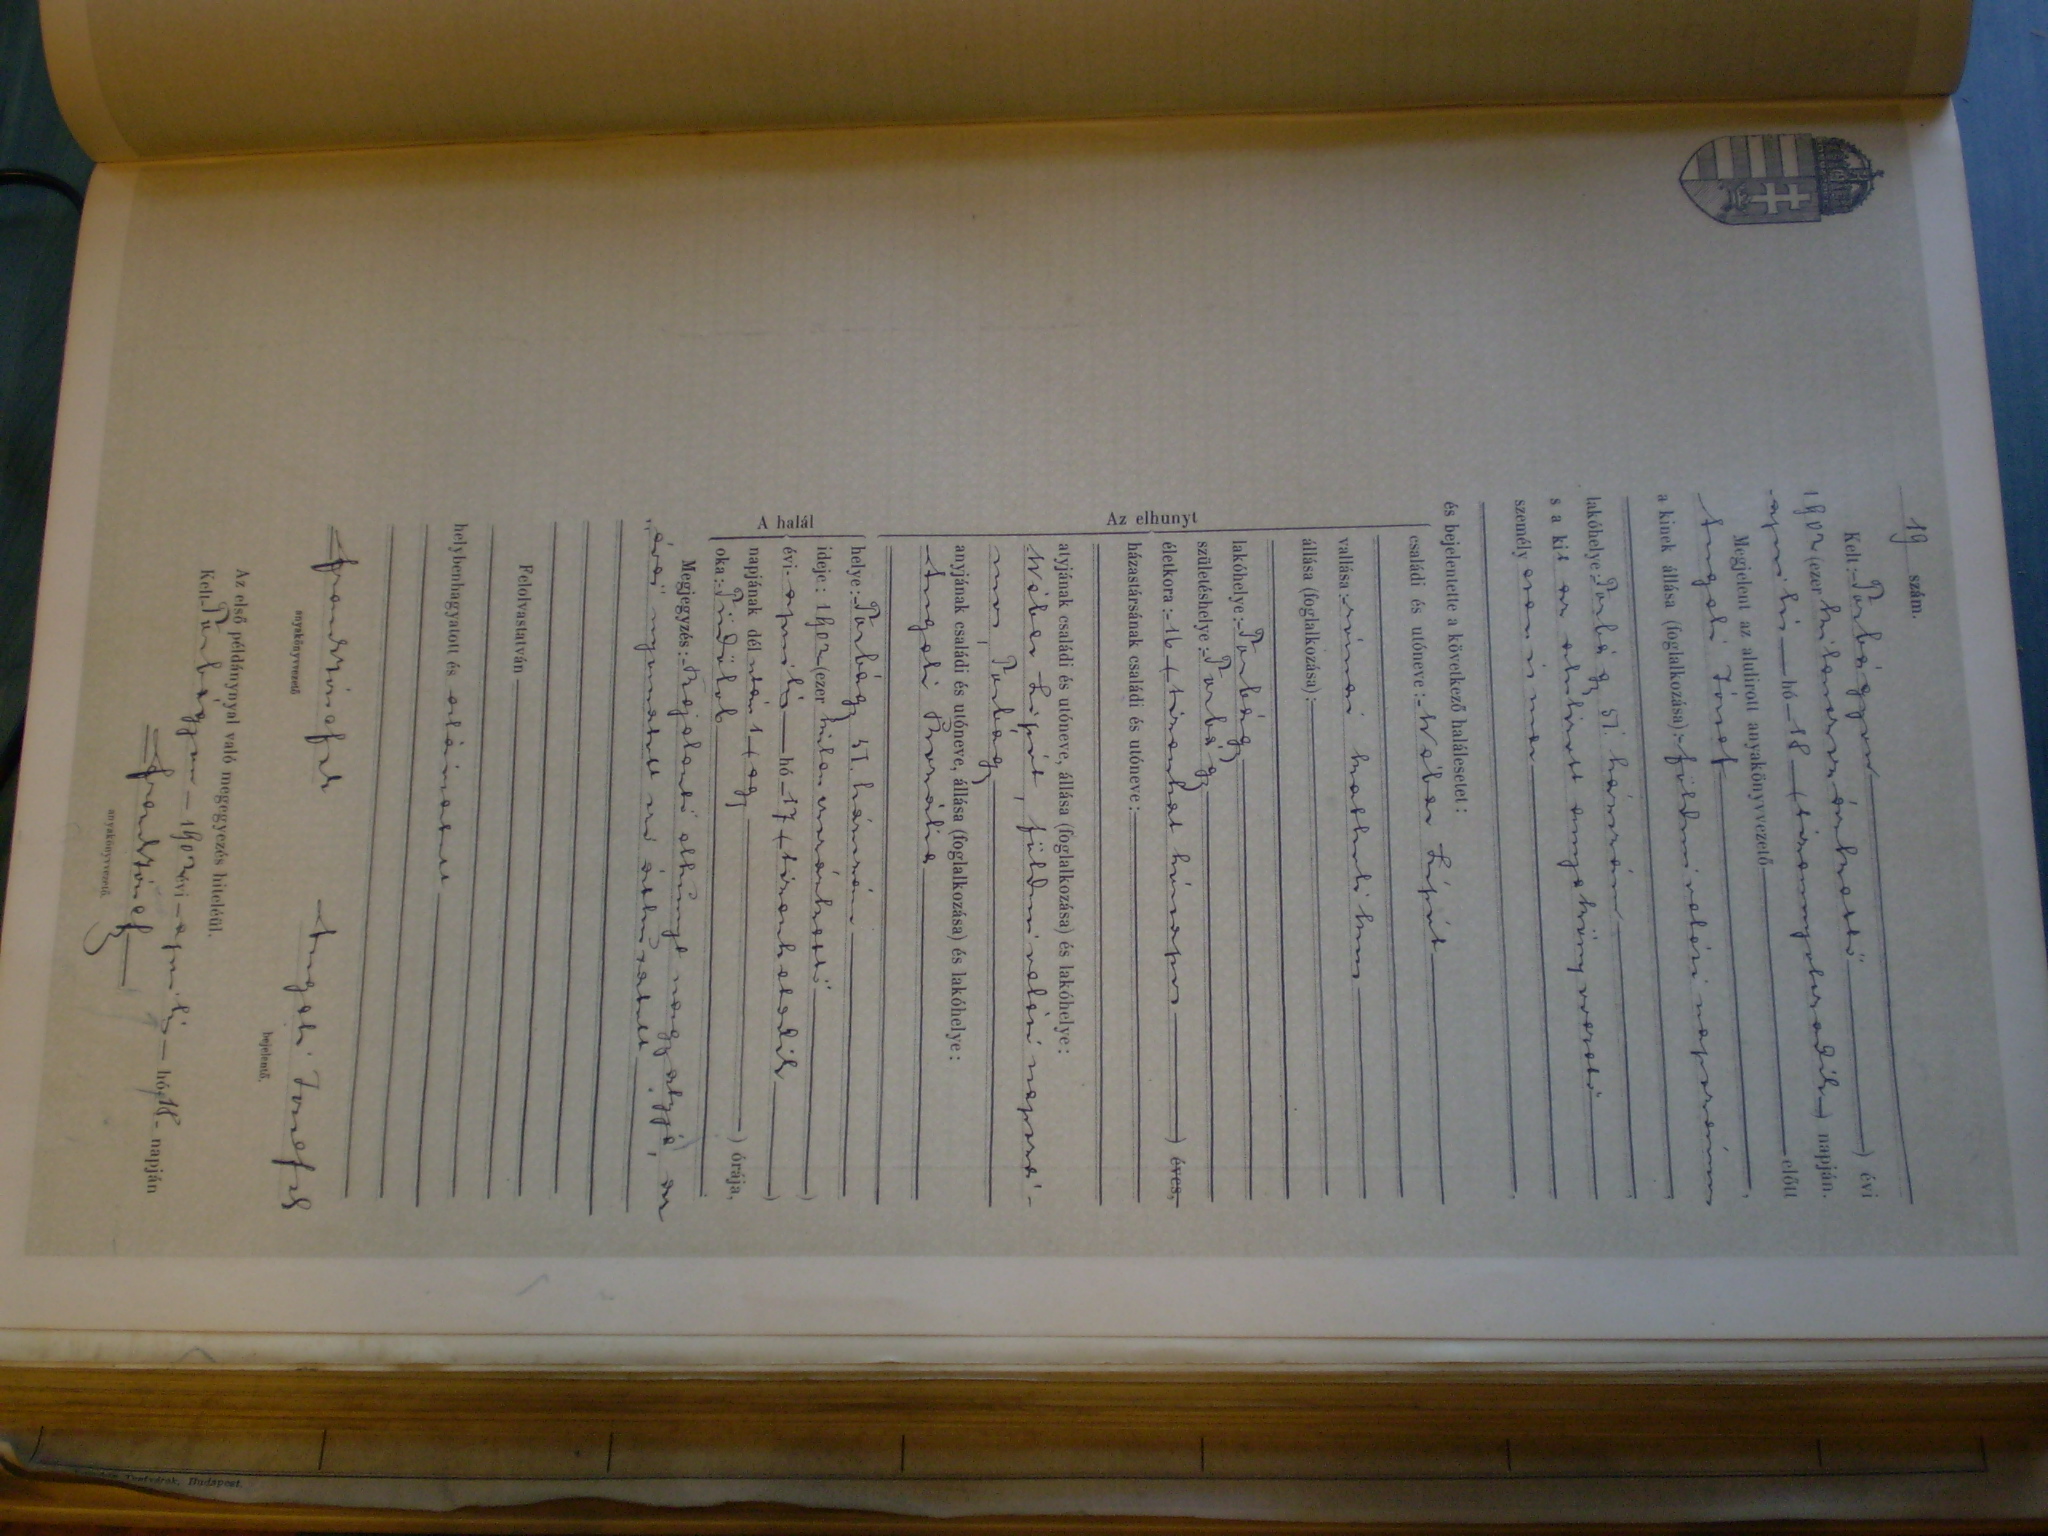 19 szám.
Kelt: Torbágyon ) évi
1902 (ezer kilenczszázkettő
április hó 18 (tizennyolczadik) napján.
Megjelent az alulirott anyakönyvvezető előtt
Angeli József,
a kinek állása (foglalkozása): földmivelési napszámos
lakóhelye: Torbágy 51. házszám,
s a kit az alulirott anyakönyvvezető
személyesen ismer,
és bejelentette a következő halálesetet:
Az elhunyt
családi és utóneve: Wéber Lipót
vallása: római katholikus
állása (foglalkozása):
lakóhelye: Torbágy
születéshelye: Torbágy
életkora: 16 (tizenhat hónapos ) éves,
házastársának családi és utóneve:
atyjának családi és utóneve, állása (foglalkozása) és lakóhelye:
Wéber Lipót, földmivelési napszá-
mos, Torbágy
anyjának családi és utóneve, állása (foglalkozása) és lakóhelye:
Angeli Rozália
A halál
helye: Torbágy 51. házszám
ideje: 1902 (ezer kilenczszázkettő )
évi április hó 17 (tizenhetedik )
napjának dél után 1 (egy ) órája,
oka: Tüdőlob
Megjegyzés: Bejelentő elhunyt nagyatyja, az
"éves" nyomatott szó áthúzatott.
Felolvastatván
helybenhagyatott és aláíratott
anyakönyvvezető
Angeli Josefh
bejelentő.
Az első példánynyal való megegyezés hiteléül.
Kelt Torbágyon 1902 évi április hó 18 napján
anyakönyvvezető.
Testvérek, Budapest.